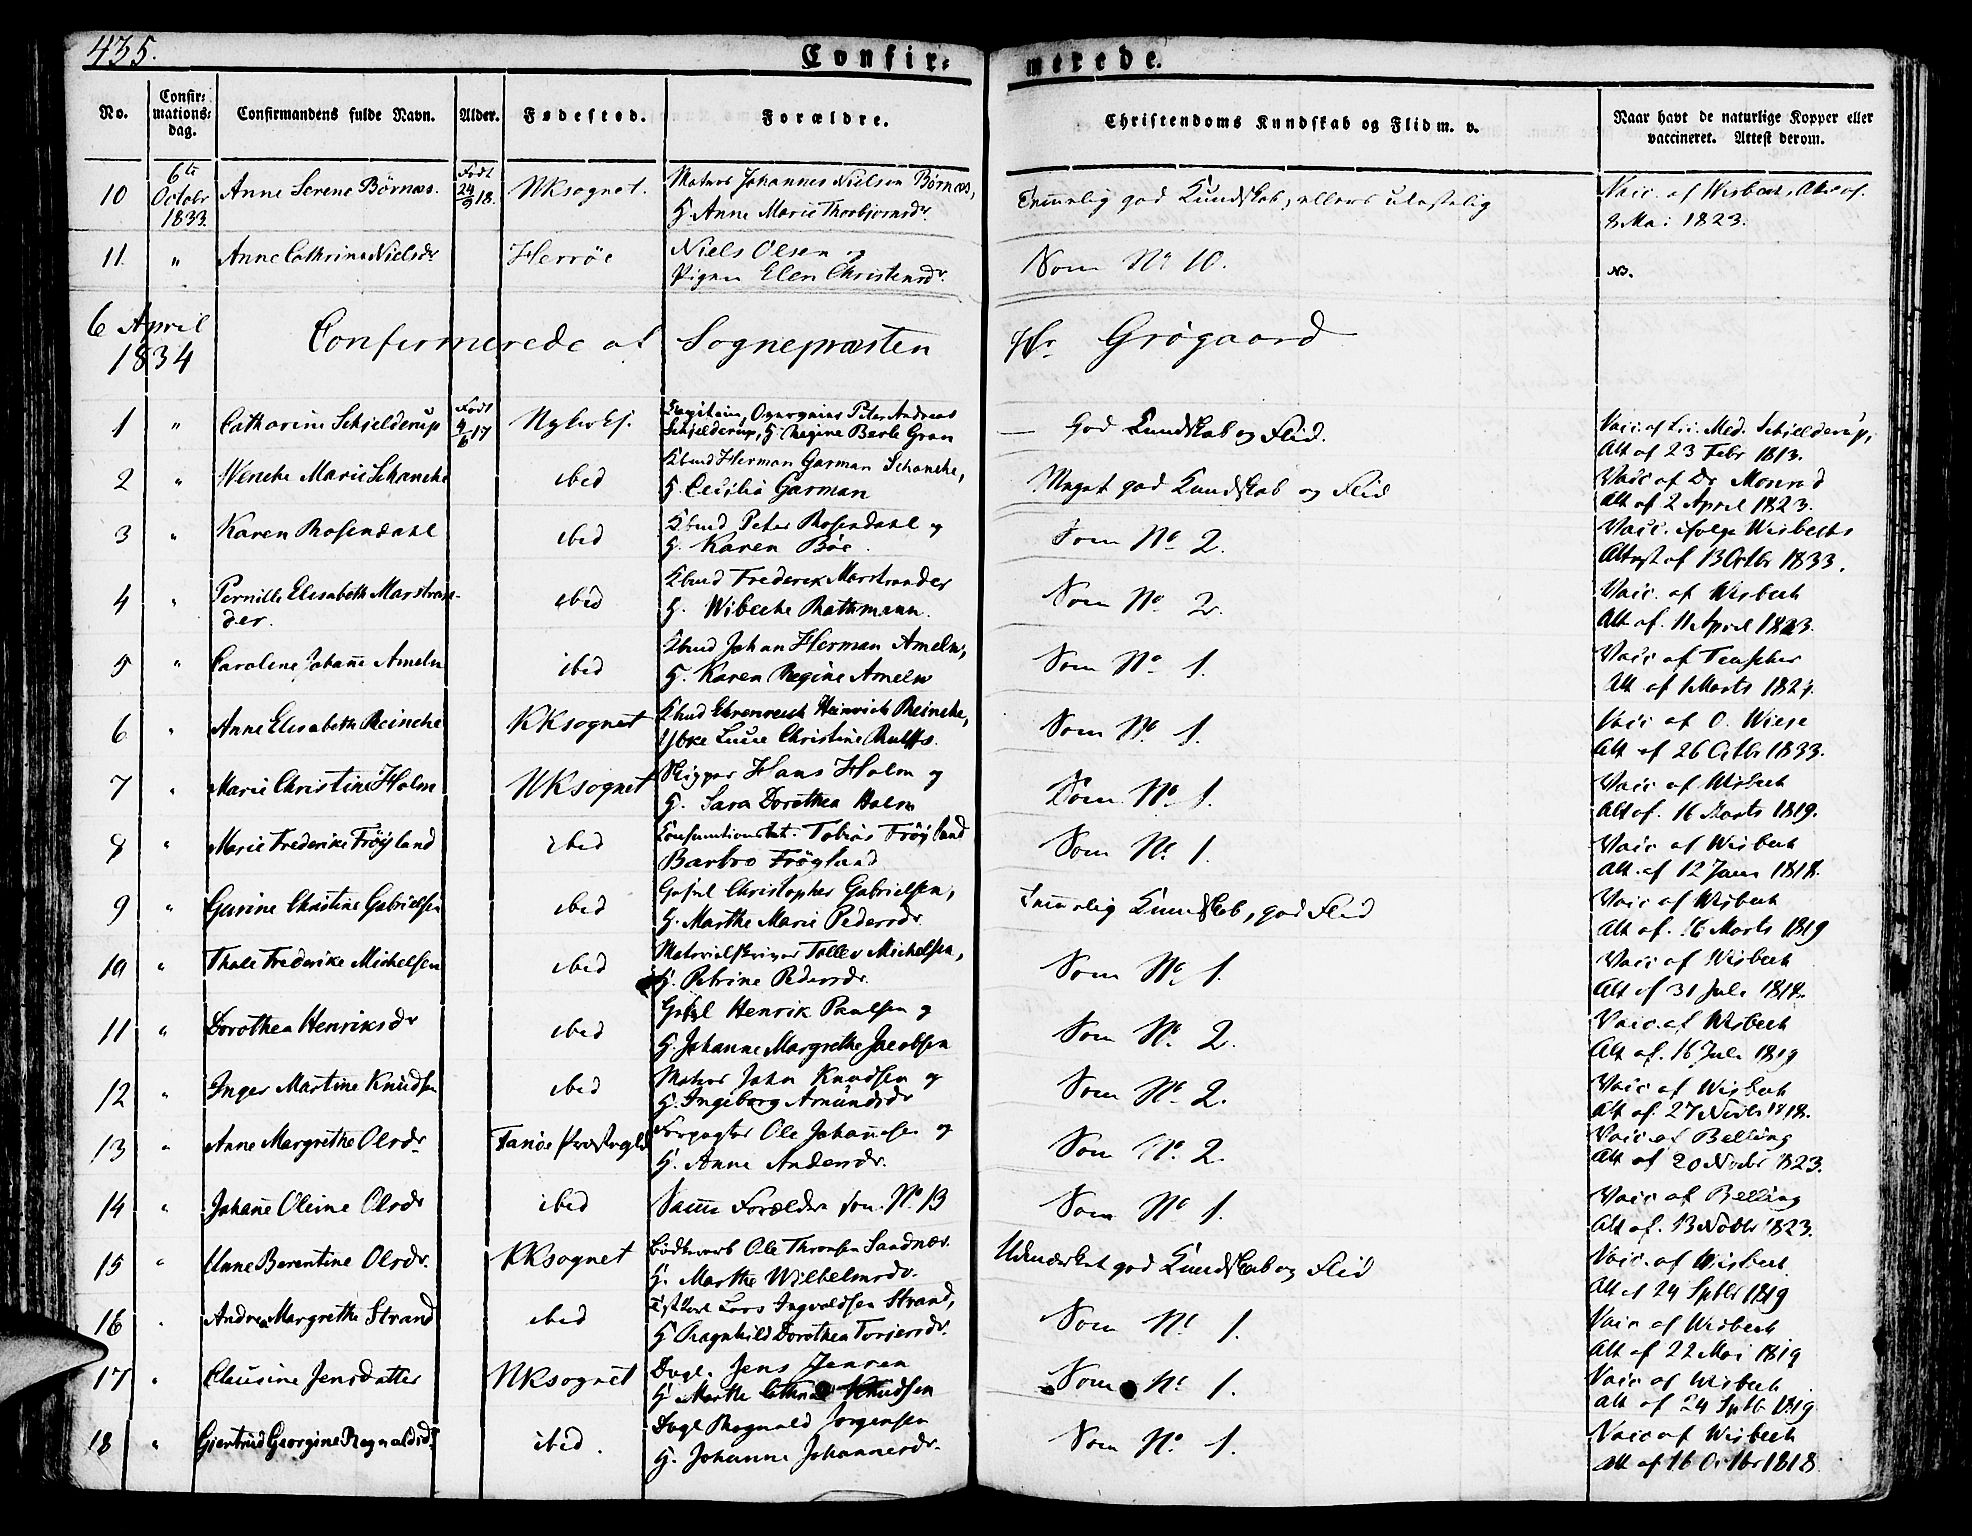 435.
Confir- merede.
No.
Confir-
mations-
dag.
Confirmandens fulde Navn.
Alder.
Fødested.
Forældre.
Christendoms Kundskab og Flid m. v.
Naar havt de naturlige Kopper eller
vaccineret. Attest derom.
10 6te Octobr 1833. Anne Serene Børnæs. Født 24/9 18. NKsognet. Matros Johannes Nielsen Børnæs,
H. Anne Marie Thorbjørnsdr
Temmelig god Kundskab, ellers ulastelig
Vacc. af Wisbech, Att af.
8 Mai 1823.
11. " Anne Cathrine Nielsdr Herröe Niels Olsen og
Pigen Elen Christensdr.
Som No 10.
6 April
1834
Confirmerede af Sognepræsten Hr Grögaard
1 " Catharine Schjelderup Født 4/6 17 Nykirks. Capitain, Peter Andreas
Schjelderup, H Regine Berle Gran
God Kundskab og Flid.
Vacc. af Lic. Med. Schjelderup,
Att af 23 Febr 1813.
2 " Wencke Marie Schancke ibid Kbmd Herman Garman Schancke,
H Cecilie Garman
Meget god Kundskab og Flid
Vacc af Dr Monrad
Att af 2 April 1823.
3 " Karen Rosendahl ibid Kbmd Peter Rosendahl og
H. Karen Böe.
Som No 2.
Vacc. ifølge Wisbechs
Attest af 13 Octbr 1833.
4 " Pernille Elisabeth Marstran-
der. ibid Kbmd Frederik Marstrander
H. Wibecke Rathmann.
Som No 2.
Vacc. af Wisbech
Att af. 11 April 1823.
5 " Caroline Johane Ameln ibid Kbmd Johan Herman Ameln,
H. Karen Regine Ameln
Som No 1.
Vacc af Teuscher
Att af 1 Marts 1821.
6 " Anne Elisabeth Reincke KKsognet Kbmd Ehrenreich Heinrich Reincke,
Ybke Lucie Christine Rulffs.
Som No 1.
Vacc af O. Wiese
Att af 26 Octbr 1833.
7 " Marie Christine Holm NKsognet Skipper Hans Holm og
H. Sara Dorothea Holm
Som No 1.
Vacc af Wisbech
Att af. 16 Marts 1819.
8 " Marie Frederike Fröyland ibid Tobias Fröyland
Barbro Fröyland
Som No 1.
Vacc af Wisbech
Att. af 12 Juni 1818.
9 " Gurine Christine Gabrielsen ibid Christopher Gabrielsen,
H. Marthe Marie Pedersdr.
Temmelig Kundskab, god Flid
Vacc af Wisbech
Att af. 16 Marts 1819
10 " Thale Frederike Michelsen ibid Materialskriver Tollev Michelsen,
H. Petrine Pedersdr.
Som No 1.
Vacc af Wisbech
Att af 31 Juli 1818.
11 " Dorothea Henriksdr ibid Henrik Paulsen og
H. Johanne Margrethe Jacobsen
Som No 2.
Vacc. af Wisbech
Att af. 16 Juli 1819
12 " Inger Martine Knudsen ibid Matros John Knudsen og
H. Ingeborg Amundsdr
Som No 2.
Vacc af Wisbech
Att af. 27 Novbr 1818.
13 " Anne Margrethe Olsdr. Fanöe Præstegjeld Forpagter Ole Johannesen og
H. Anne Andersdr.
Som No 2.
Vacc af Belling
Att af 20 Novbr 1823.
14 " Johanne Oleine Olsdr ibid Samme Forældre som No 13
Som No 1.
Vacc af Belling
Att af. 13 Novbr 1823.
15 " Anne Berentine Olsdr. KKsognet Ole Thronsen Sandnæs.
H. Marthe Wilhelmsdr.
Udmærket god Kundskab og Flid
Vacc. af Wisbech
Att af 24 Sptbr 1819
16 " Andrea Margrethe Strand ibid Lars Ingvaldsen Strand,
H Ragnhild Dorothea Torjersdr.
Som No 1.
Vacc af Wisbech
Att af 22 Mai 1819
17 " Clausine Jensdatter NKsognet Dagl. Jens Jensen
H Marthe Knudsen
Som No 1.
Vacc af Wisbech
Att af 24 Sptb 1819
18 " Giertrud Georgine Ragnaldsdr ibid. Dagl Ragnald Jorgensen
H. Johanne Johannesdr.
Som No. 1.
Vacc af Wisbech
Att af 16 Octbr 1818